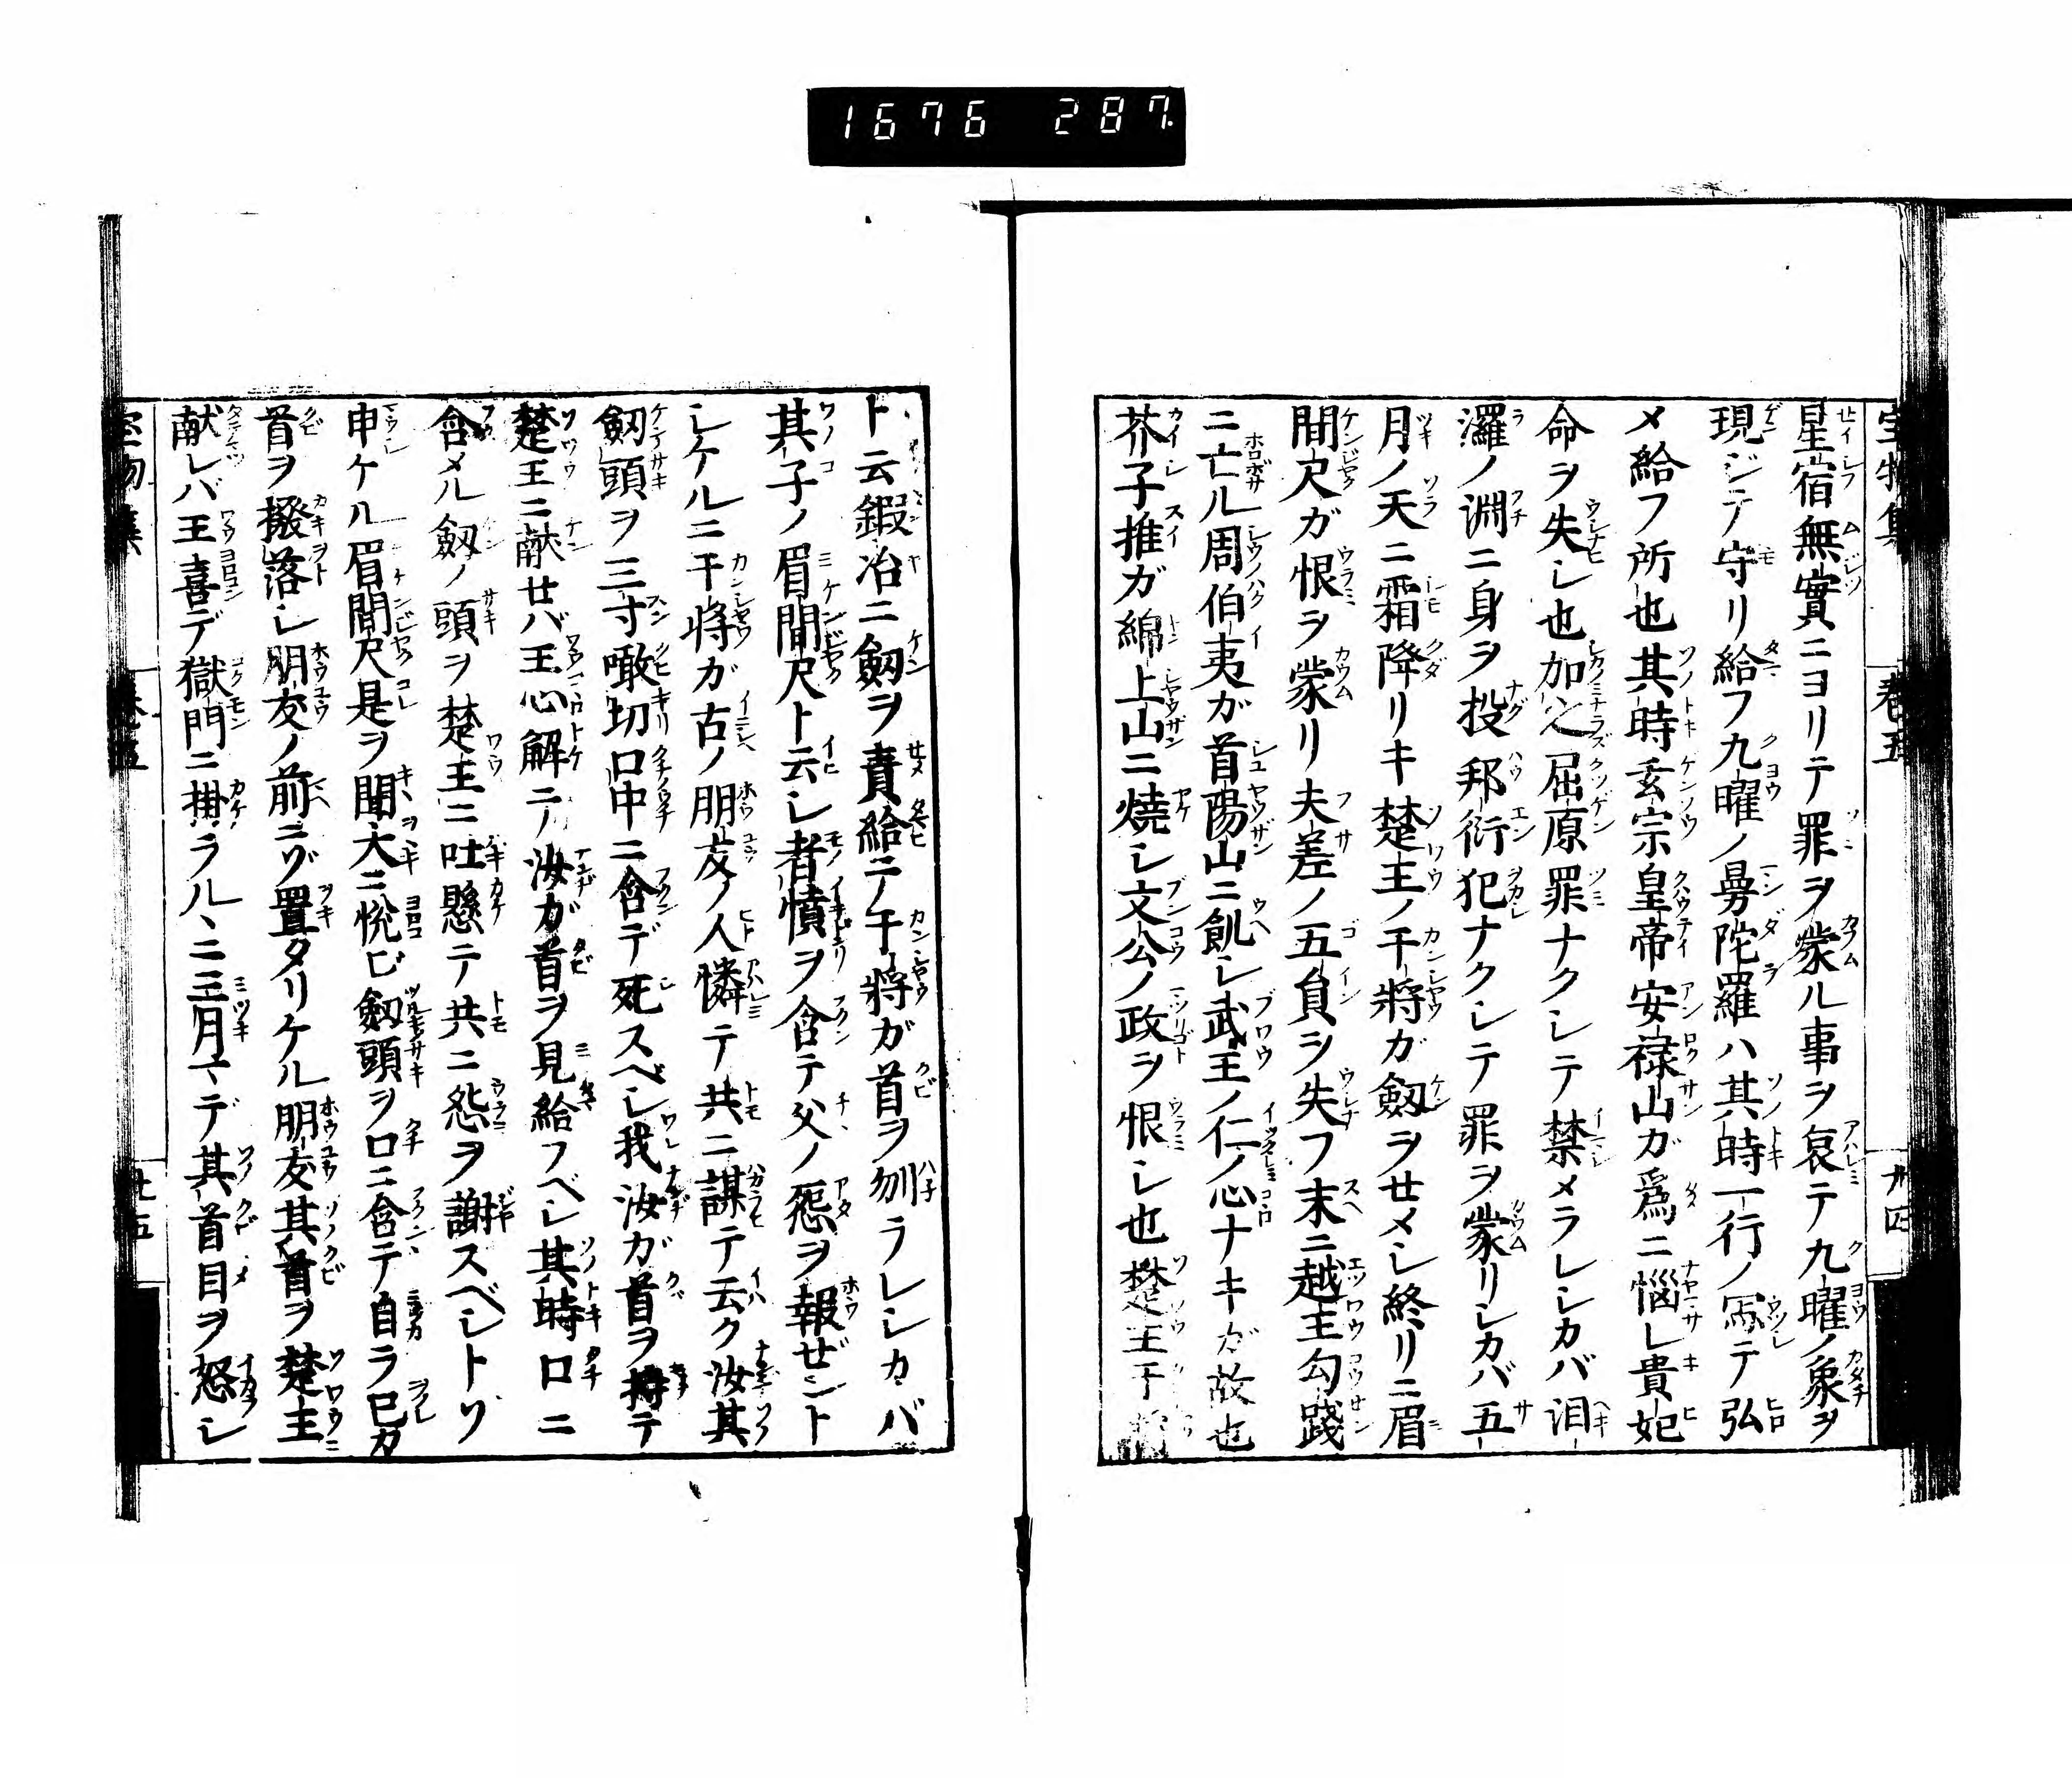 1676 287.
星宿無實ニヨリテ罪ヲ蒙ル事ヲ哀テ九曜ノ象ヲ
現ジテ守リ給フ九曜ノ曼陀羅ハ其時一行ノ冩テ弘
メ給フ所也其時玄宗皇帝安禄山ガ爲ニ惱レ貴妃
命ヲ失レ也加之屈原罪ナクシテ禁メラレシカバ汨
灑ノ淵ニ身ヲ投邦衍犯ナクシテ罪ヲ蒙リシカバ五
月ノ天ニ霜降リキ楚王ノ干將ガ劔ヲせメシ終リニ眉
間尺ガ恨ヲ蒙リ夫差ノ五負ヲ失フ末ニ越王勾踐
ニ亡ル周伯夷ガ首陽山ニ飢シ武王ノ仁ノ心ナキガ故也
芥子推ガ綿上山ニ燒シ文公ノ政ヲ恨シ也楚王干將
ト云鍛冶ニ劔ヲ責給ニノ干將ガ首ヲ刎ラレシカバ
其子ノ眉間尺ト云シ者憤ヲ含テ父ノ怨ヲ報ぜント
シケルニ干將ガ古ノ朋友ノ人憐テ共ニ謀テ云ク汝其
劔頭ヲ三寸噉切口中ニ含デ死スベシ我汝ガ首ヲ持テ
楚王ニ献せバ王心解テ汝ガ首ヲ見給フベシ其時口ニ
含メル劔ノ頭ヲ楚王ニ吐懸テ共ニ怨ヲ謝スベシトゾ
申ケル眉間尺是ヲ聞大ニ悦ビ劔頭ヲ口ニ含テ自ラ己ガ
首ヲ撥落シ朋友ノ前ニゾ置タリケル朋友其首ヲ楚王
献レバ王喜デ獄門ニ掛ラルヽニ三月マデ其首目ヲ怒シ
卷五